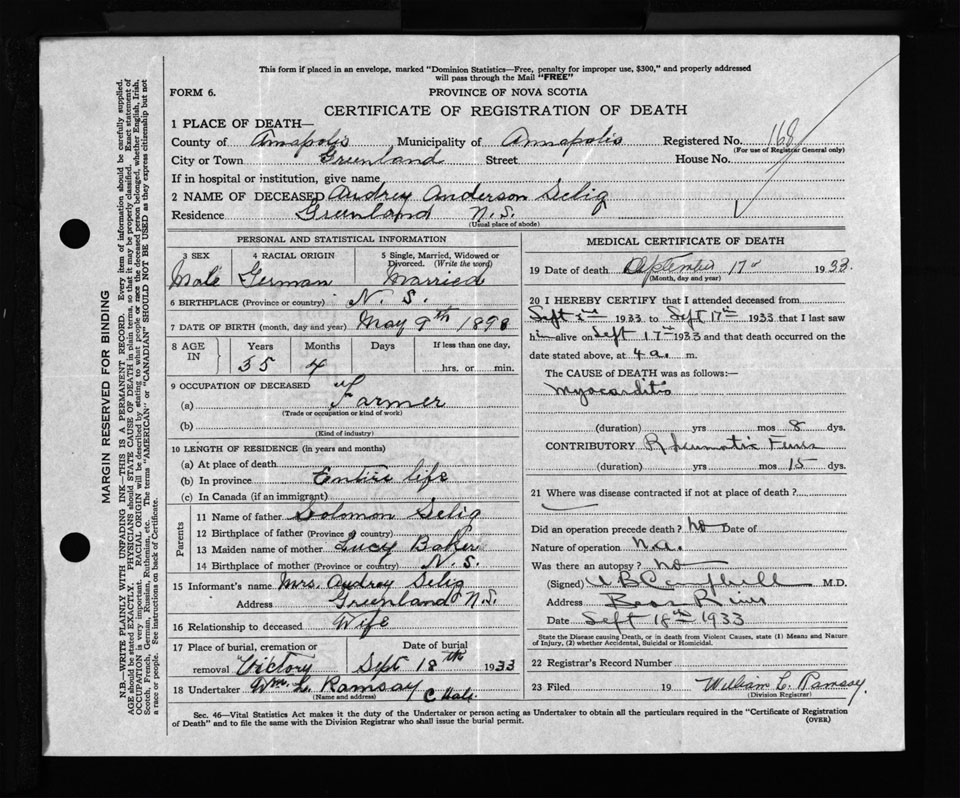 This form if placed in an envelope, marked "Dominion Statistics—Free, penalty for improper use, $300," and properly addressed
will pass through the Mail "FREE"
FORM 6.
PROVINCE OF NOVA SCOTIA
CERTIFICATE OF REGISTRATION OF DEATH
1 PLACE OF DEATH—
County of Annapolis Municipality of Annapolis Registered No. 168
(For use of Registrar General only)
City or Town Greenland Street House No.
If in hospital or institution, give name
2 NAME OF DECEASED Audrey Anderson Selig
Residence Greenland N.S.
(Usual place of abode)
PERSONAL AND STATISTICAL INFORMATION
3 SEX 4 RACIAL ORIGIN 5 Single, Married, Widowed or
Divorced. (Write the word)
Male German Married
6 BIRTHPLACE (Province or country) N.S.
7 DATE OF BIRTH (month, day and year) May 9th 1898
8 AGE IN Years Months Days If less than one day,
35 4 hrs. or min.
9 OCCUPATION OF DECEASED
(a) Farmer
(Trade or occupation or kind of work)
(b)
(Kind of industry)
10 LENGTH OF RESIDENCE (in years and months)
(a) At place of death
(b) In province Entire life
(c) In Canada (if an immigrant)
Parents
11 Name of father Solomon Selig
12 Birthplace of father (Province or country)
13 Maiden name of mother Lucy Baker
14 Birthplace of mother (Province or country) N.S.
15 Informant's name Mrs. Audrey Selig
Address Greenland N.S.
16 Relationship to deceased Wife
17 Place of burial, cremation or Date of burial
removal Victory Sept 18th 1933
18 Undertaker Wm. L. Ramsay
(Name and address)
MEDICAL CERTIFICATE OF DEATH
19 Date of death September 17 1933.
(Month, day and year)
20 I HEREBY CERTIFY that I attended deceased from
Sept 1933 to Sept 17th 1933 that I last saw
him alive on Sept 17th 1933 and that death occurred on the
date stated above, at 4 a. m.
The CAUSE of DEATH was as follows:—
Myocarditis
(duration) yrs mos 8 dys.
CONTRIBUTORY Rheumatic Fever
(duration) yrs mos 15 dys.
21 Where was disease contracted if not at place of death?
Did an operation precede death? no Date of
Nature of operation n.a.
Was there an autopsy? no
(Signed) M.D.
Address Bear River
Date Sept 18th 1933
State the Disease causing Death, or in death from Violent Causes, state (1) Means and Nature
of Injury, (2) whether Accidental, Suicidal or Homicidal.
22 Registrar's Record Number
23 Filed 19 William L. Ramsay.
(Division Registrar)
Sec. 46—Vital Statistics Act makes it the duty of the Undertaker or person acting as Undertaker to obtain all the particulars required in the "Certificate of Registration
of Death" and to file the same with the Division Registrar who shall issue the burial permit.
(OVER)
MARGIN RESERVED FOR BINDING
N.B.—WRITE PLAINLY WITH UNFADING INK—THIS IS A PERMANENT RECORD. Every item of information should be carefully supplied.
AGE should be stated EXACTLY. PHYSICIANS should STATE CAUSE OF DEATH in plain terms, so that it may be properly classified. Exact statement of
OCCUPATION is very important. RACIAL ORIGIN will be described by stating to what people or race the deceased person belonged, whether English, Irish,
Scotch, French, German, Russian, Ruthenian, etc. The terms "AMERICAN" or "CANADIAN" SHOULD NOT BE USED as they express citizenship but not
a race or people. See instructions on back of Certificate.